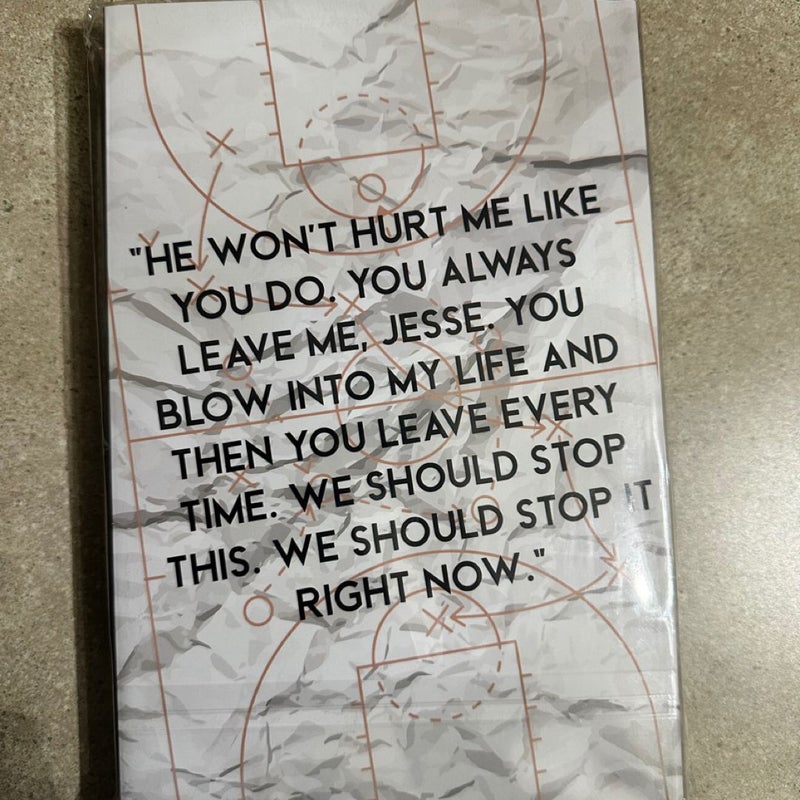 "HE WON'T HURT ME LIKE
YOU DO. YOU ALWAYS
LEAVE ME, JESSE. YOU
BLOW INTO MY LIFE AND
THEN YOU LEAVE EVERY
TIME. WE SHOULD STOP
THIS. WE SHOULD STOP IT
RIGHT NOW."